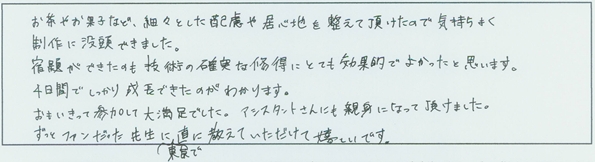 お茶やお菓子など、細々とした配慮や居心地を整えて頂けたので気持ちよく
制作に没頭できました。
宿題ができたのも技術の確実な修得にとても効果的でよかったと思います。
4日間でしっかり成長できたのがわかります。
おもいきって参加して大満足でした。アシスタントさんにも親身になって頂けました。
ずっとファンだった先生に直に教えていただけて嬉しいです。
東京で